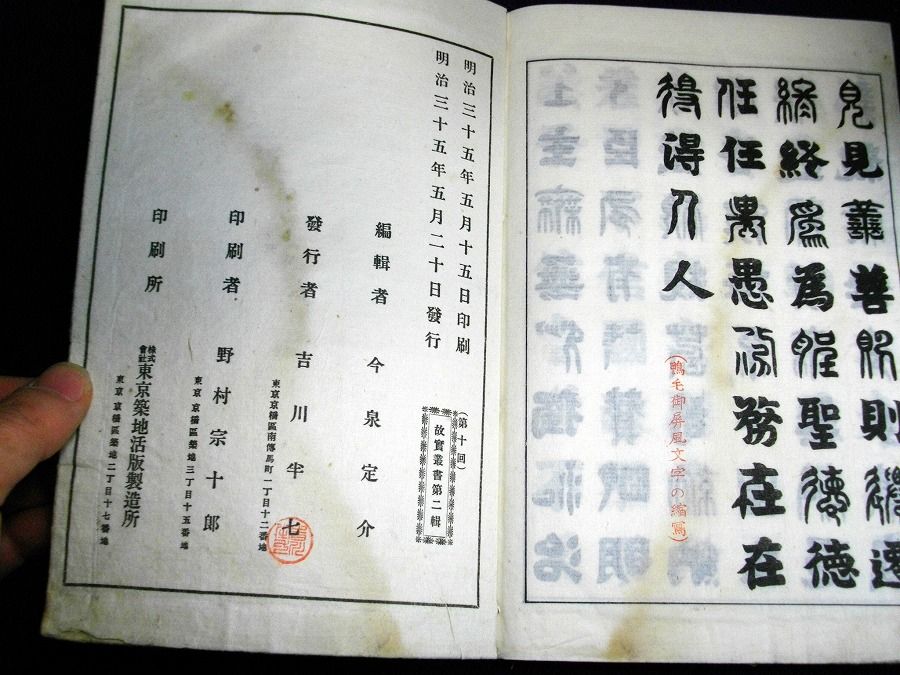 見見善善則則遷遷
終終爲為聖聖德德
任任愚愚務務在在
得得人人
(鴨毛御屏風文字の縮寫)
明治三十五年五月十五日印刷
明治三十五年五月二十日發行
(第十回)
故實叢書第二輯
編輯者 今泉定介
發行者 吉川半七
東京京橋區南傳馬町一丁目十二番地
印刷者 野村宗十郎
東京京橋區築地三丁目十五番地
印刷所 株式會社東京築地活版製造所
東京京橋區築地二丁目十七番地